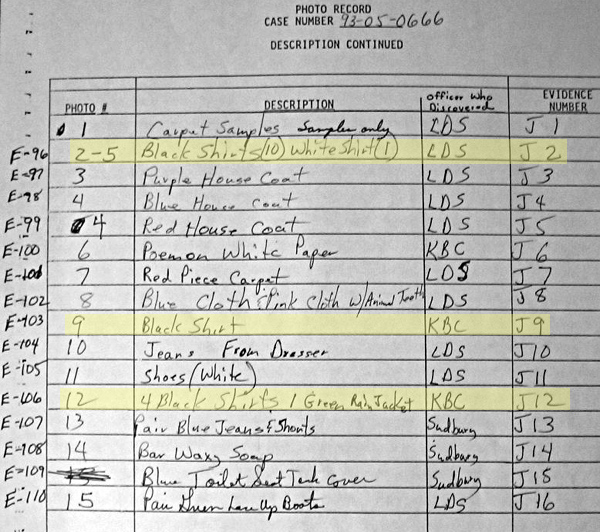 PHOTO RECORD
CASE NUMBER 93-05-0666
DESCRIPTION CONTINUED
PHOTO # DESCRIPTION Officer Who Discovered EVIDENCE NUMBER
1 Carpet Samples Samples only LDS J 1
E-96 2-5 Black Shirts (10) White Shirt (1) LDS J 2
E-97 3 Purple House Coat LDS J 3
E-98 4 Blue House Coat LDS J 4
E-99 4 Red House Coat LDS J 5
E-100 6 Poem on White Paper KBC J 6
E-101 7 Red Piece Carpet LDS J 7
E-102 8 Blue Cloth Pink Cloth W/Animal Teeth LDS J 8
E-103 9 Black Shirt KBC J9
E-104 10 Jeans From Dresser LDS J10
E-105 11 Shoes (White) LDS J11
E-106 12 4 Black Shirts 1 Green Rain Jacket KBC J12
E-107 13 Pair Blue Jeans & Shorts Sudbury J13
E-108 14 Bar Waxy Soap Sudbury J14
E-109 Blue Toilet Seat Tank Cover Sudbury J15
E-110 15 Pair Green Lace Up Boots LDS J16